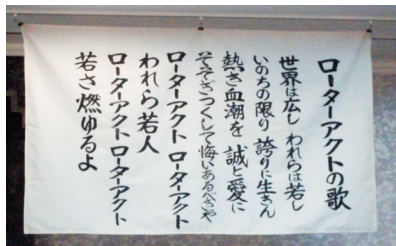 ローターアクトの歌
世界は広し われらは若し
いのちの限り 誇りに生きん
熱き血潮を 誠と愛に
そそぎつくして 悔いあるべきや
ローターアクト ローターアクト
われら若人
ローターアクト ローターアクト
若さ燃ゆるよ